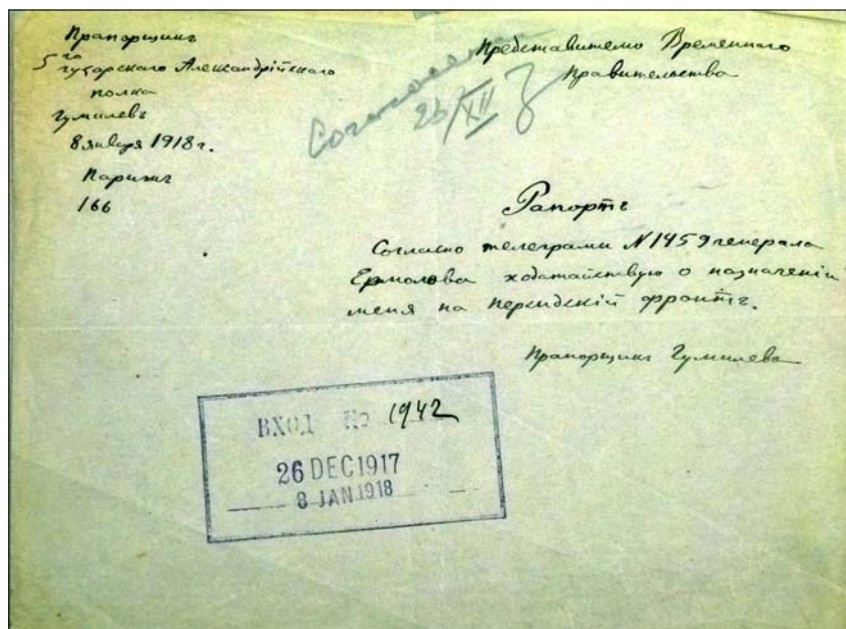 Прапорщикъ
5го гусарскаго Александрійскаго
полка
Гумилевъ
8 января 1918 г.
Парижъ
166
Представителю Временного
Правительства
26/XII
Рапортъ
Согласно телеграмы N1459 генерала
Ермолова ходатайствую о назначеніи
меня на персидскій фронтъ.
Прапорщикъ Гумилевъ
ВХОД № 1942
26 DEC 1917
8 JAN 1918